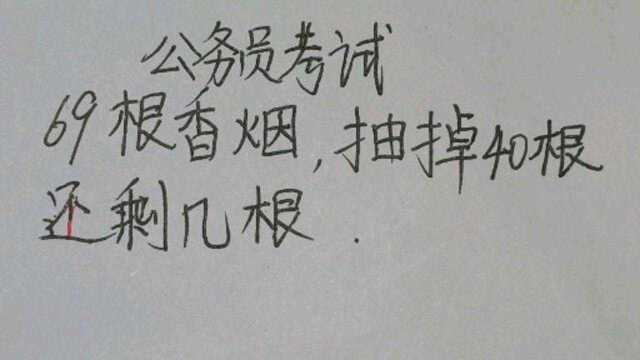 公务员考试
69根香烟,抽掉40根
还剩几根.